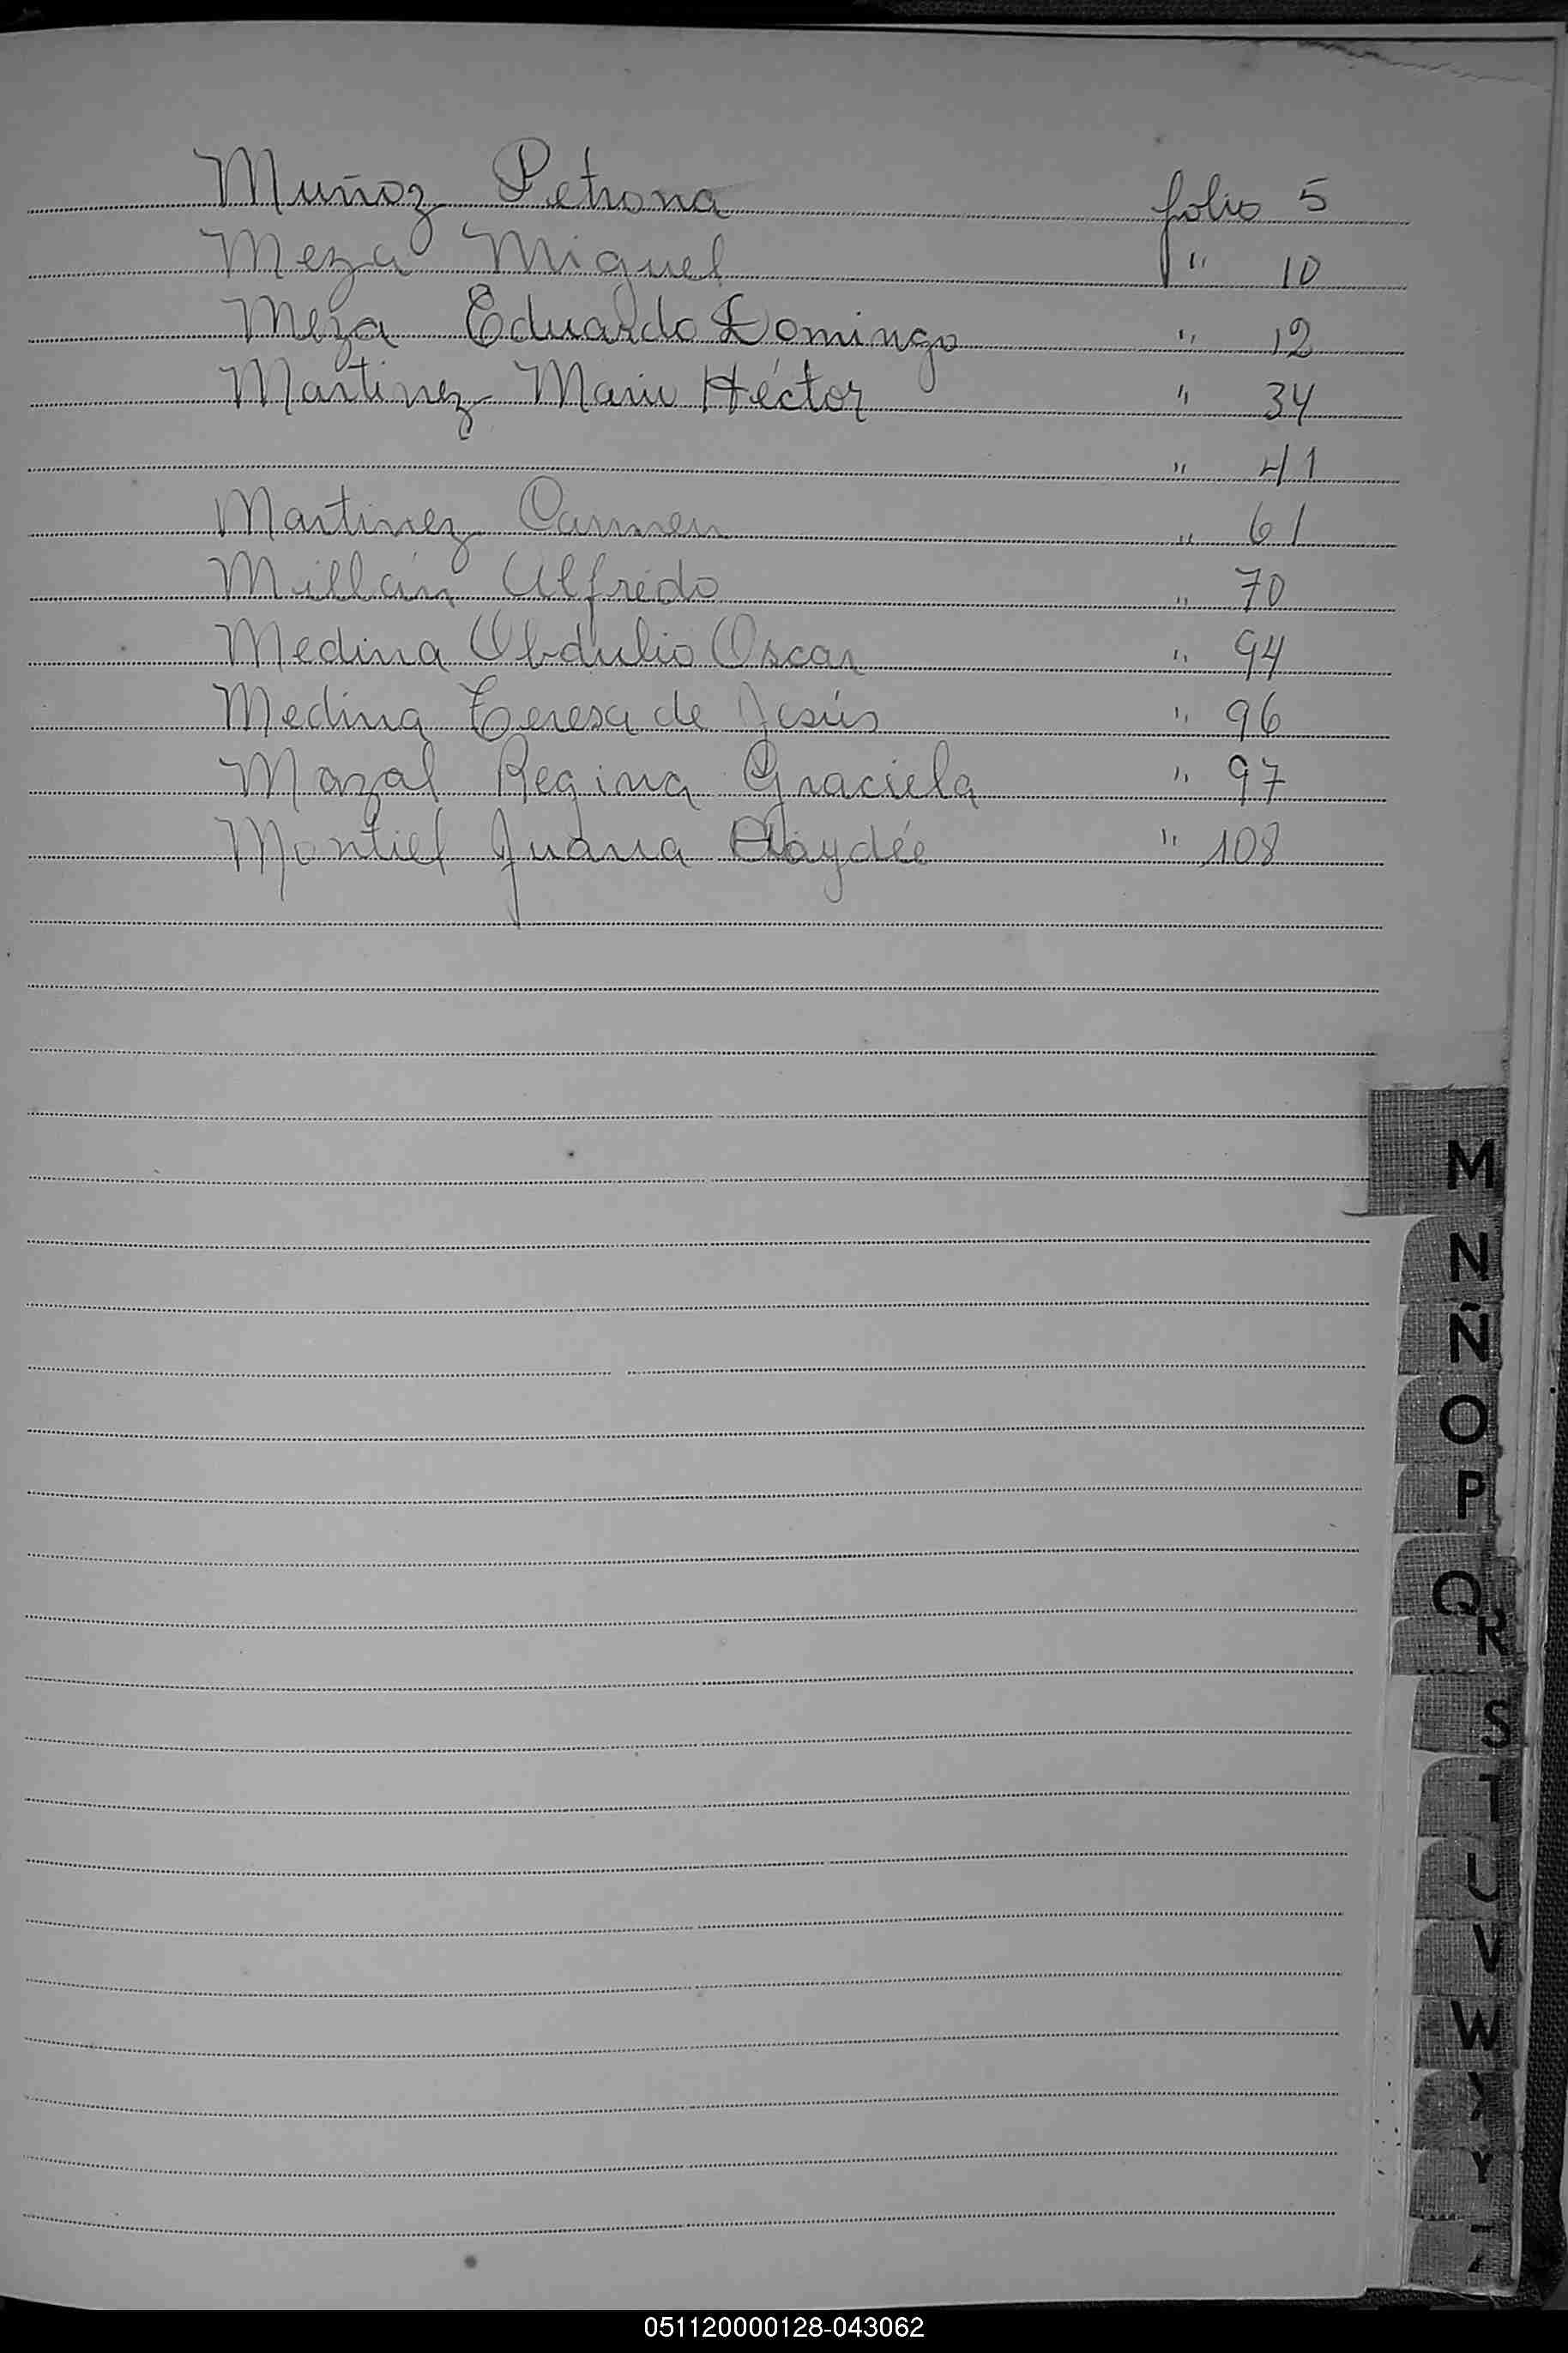 Muñoz Petrona folio 5
Meza Miguel " 10
Meza Eduardo Domingo " 12
Martinez Mario Héctor " 34
" 41
Martinez Carmen " 61
Millán Alfredo " 70
Medina Obdulio Oscar " 94
Medina Teresa de Jesús " 96
Mazal Regina Graciela " 97
Montiel Juana Haydée " 108
M
N
Ñ
O
P
Q
R
S
T
U
V
W
X
Y
Z
051120000128-043062